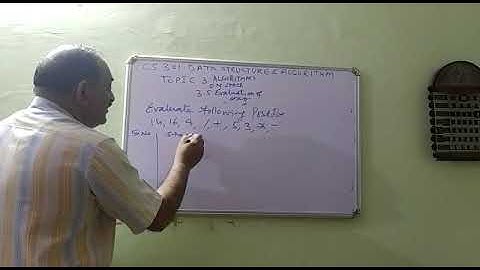 CS 301 DATA STRUCTURE & ALGORITHM
TOPIC 3 ALGORITHMS
ON STACK
3.5 Evaluation of
Evaluate following Postfix
16, 16, 4, /, +, 5, 3, *, -
S.No